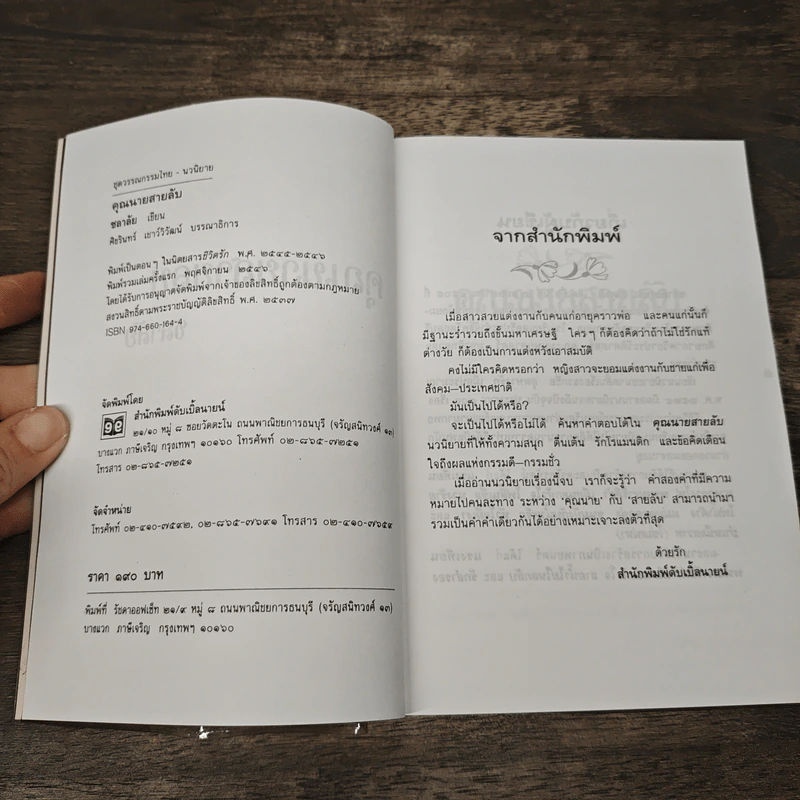 ชุดวรรณกรรมไทย - นวนิยาย
คุณนายสายลับ
ชลาลัย เขียน
ศิธรินทร์ เยาว์วิวัฒน์ บรรณาธิการ
พิมพ์เป็นตอนๆ ในนิตยสารชีวิตรัก พ.ศ. ๒๕๔๕-๒๕๔๖
พิมพ์รวมเล่มครั้งแรก พฤศจิกายน ๒๕๔๖
โดยได้รับการอนุญาตจัดพิมพ์จากเจ้าของลิขสิทธิ์ถูกต้องตามกฎหมาย
สงวนลิขสิทธิ์ตามพระราชบัญญัติลิขสิทธิ์ พ.ศ. ๒๕๓๗
ISBN 974-660-164-4
จัดพิมพ์โดย
สำนักพิมพ์ดับเบิ้ลนายน์
๒๑/๑๐ หมู่ ๘ ซอยวัดตะโน ถนนพาณิชยการธนบุรี (จรัญสนิทวงศ์ ๑๓)
บางแวก ภาษีเจริญ กรุงเทพฯ ๑๐๑๖๐ โทรศัพท์ ๐๒-๘๖๕-๗๒๕๑
โทรสาร ๐๒-๘๖๕-๗๒๕๑
จัดจำหน่าย
โทรศัพท์ ๐๒-๔๑๐-๗๕๙๒, ๐๒-๘๖๕-๗๖๙๑ โทรสาร ๐๒-๔๑๐-๗๖๕๙
ราคา ๑๙๐ บาท
พิมพ์ที่ รัชดาออฟเซ็ท ๒๑/๙ หมู่ ๘ ถนนพาณิชยการธนบุรี (จรัญสนิทวงศ์ ๑๓)
บางแวก ภาษีเจริญ กรุงเทพฯ ๑๐๑๖๐
จากสำนักพิมพ์
เมื่อสาวสวยแต่งงานกับคนแก่อายุคราวพ่อ และคนแก่นั้นก็
มีฐานะร่ำรวยถึงขั้นมหาเศรษฐี ใครๆ ก็ต้องคิดว่าถ้าไม่ใช่รักแท้
ต่างวัย ก็ต้องเป็นการแต่งหวังเอาสมบัติ
คงไม่มีใครคิดหรอกว่า หญิงสาวจะยอมแต่งงานกับชายแก่เพื่อ
สังคม–ประเทศชาติ
มันเป็นไปได้หรือ?
จะเป็นไปได้หรือไม่ได้ ค้นหาคำตอบได้ใน คุณนายสายลับ
นวนิยายที่ให้ทั้งความสนุก ตื่นเต้น รักโรแมนติก และข้อคิดเตือน
ใจถึงผลแห่งกรรมดี–กรรมชั่ว
เมื่ออ่านนวนิยายเรื่องนี้จบ เราก็จะรู้ว่า คำสองคำที่มีความ
หมายไปคนละทาง ระหว่าง 'คุณนาย' กับ 'สายลับ' สามารถนำมา
รวมเป็นคำคำเดียวกันได้อย่างเหมาะเจาะลงตัวที่สุด
ด้วยรัก
สำนักพิมพ์ดับเบิ้ลนายน์